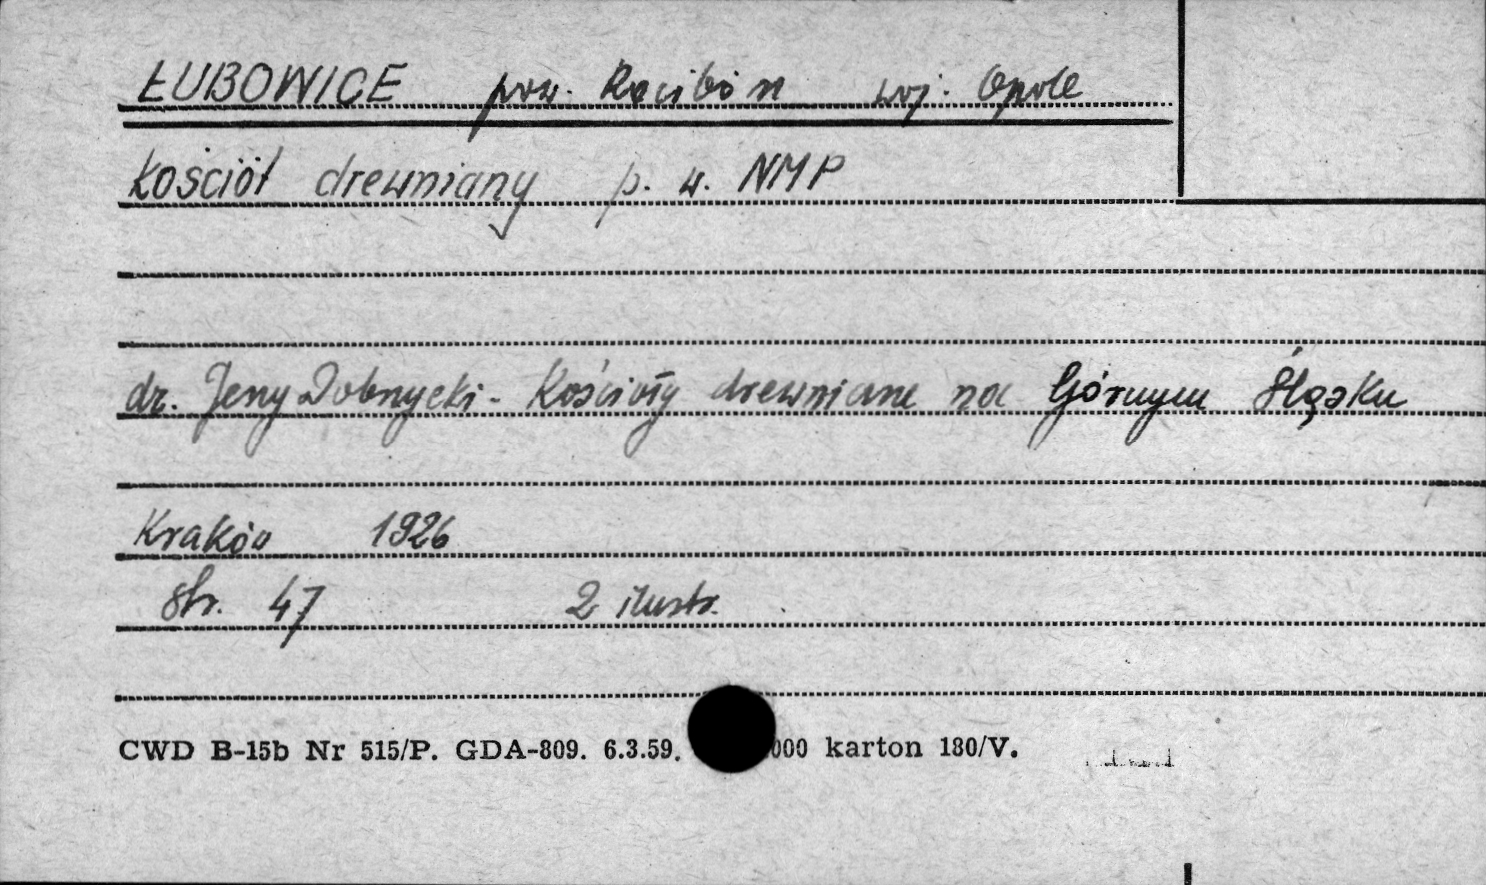 ŁUBOWICE pow. Racibórz woj. Opole
kościół drewniany p. w. NMP
dr. Jerzy Dobrzycki - Kościoły drewniane na Górnym Śląsku
Kraków 1926
str. 47 2 ilustr.
CWD B-15b Nr 515/P. GDA-809. 6.3.59. 000 karton 180/V.